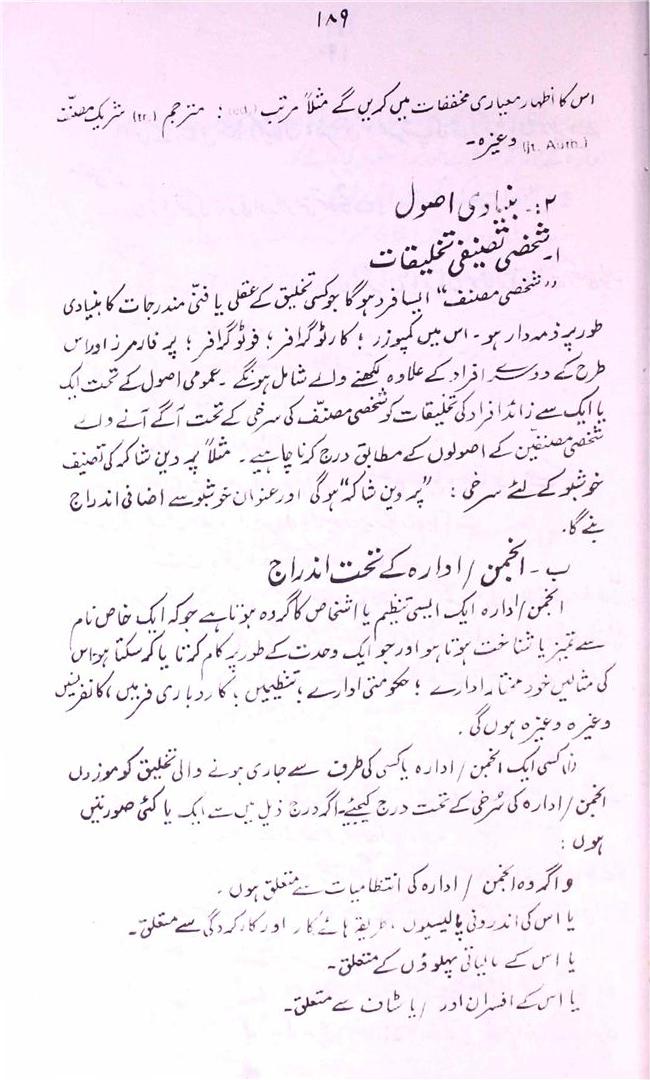 ۱۸۹
اس کا اظہار معیاری مخففات میں کریں گے مثلاً مرتب (ed.) ؛ مترجم (tr.) شریک مصنّف
(jt. Auth.) وغیرہ۔
۲:۔ بنیادی اصول
ا۔ شخصی تصنیفی تخلیقات
”شخصی مصنف“ ایسا فرد ہوگا جو کسی تخلیق کے عقلی یا فنّی مندرجات کا بنیادی
طور پر ذمہ دار ہو۔ اس میں کمپوزر ؛ کارٹوگرافر ؛ فوٹوگرافر ؛ پرفارمرز اور اس
طرح کے دوسرے افراد کے علاوہ لکھنے والے شامل ہونگے۔ عمومی اصول کے تحت ایک
یا ایک سے زائد افراد کی تخلیقات کو شخصی مصنّف کی سرخی کے تحت آگے آنے والے
شخصی مصنفین کے اصولوں کے مطابق درج کرنا چاہیے۔ مثلاً پروین شاکر کی تصنیف
خوشبو کے لئے سرخی : ”پروین شاکر“ ہوگی اور عنوان خوشبو سے اضافی اندراج
بنے گا.
ب۔ انجمن / ادارہ کے تحت اندراج
انجمن / ادارہ ایک ایسی تنظیم یا اشخاص کا گروہ ہوتا ہے جو کہ ایک خاص نام
سے تمیز یا شناخت ہوتا ہو اور جو ایک وحدت کے طور پر کام کرتا یا کر سکتا ہو۔ اس
کی مثالیں خود مختار ادارے ؛ حکومتی ادارے ؛ تنظیمیں ؛ کاروباری فرمیں ، کانفرنسیں
وغیرہ وغیرہ ہوں گی.
(i) کسی ایک انجمن / ادارہ یا کسی کی طرف سے جاری ہونے والی تخلیق کو موزوں
انجمن / ادارہ کی سُرخی کے تحت درج کیجئیے۔ اگر درج ذیل میں سے ایک یا کئی صورتیں
ہوں :
و اگر وہ انجمن / ادارہ کی انتظامیات سے متعلق ہوں۔
یا اس کی اندرونی پالیسیوں ، طریقہ ہائے کار اور کارکردگی سے متعلق۔
یا اس کے مالیاتی پہلوؤں کے متعلق۔
یا اس کے افسران اور / یا سٹاف سے متعلق۔